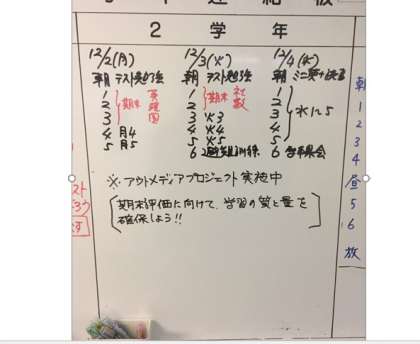 2 学 年
12/2(月) 12/3(火) 12/4(水)
朝 テスト勉強会 朝 テスト勉強会 朝
1 英 1 社 1
2 期末 理 2 期末 数 2
3 国 3 火3 3 水1~5
4 月4 4 火4 4
5 月5 5 火5 5
6 訓練 6 学年集会
※アウトメディアプロジェクト実施中
期末評価に向けて、学習の質と量を
確保しよう!!
朝
1
2
3
4
昼
5
6
放